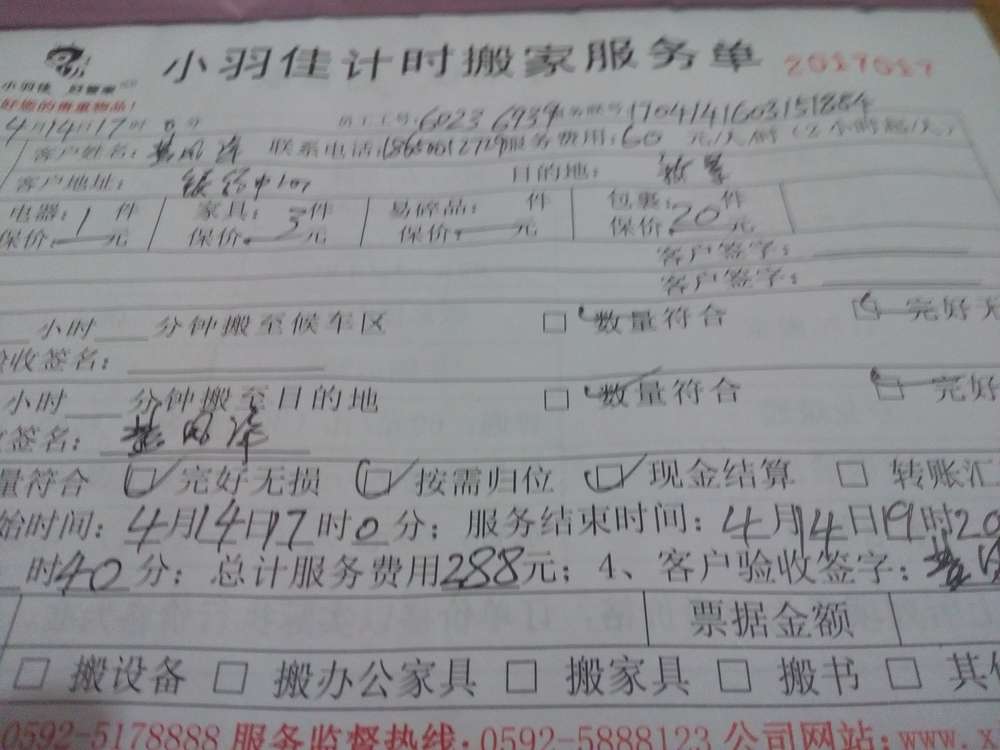 小羽佳计时搬家服务单 2017017
小羽佳 好管家
好您的贵重物品！
4月14日17时0分 员工工号:6023 6939 170414160315188
客户姓名： 联系电话: 服务费用:60 元/人/时（2小时起/人）
客户地址： 目的地：
电器：1件 家具：3件 易碎品： 件 包裹：20件
保价 元 保价 元 保价 元 保价 元
客户签字：
客户签字：
小时 分钟搬至候车区 □ 数量符合 完好无
收签名：
小时 分钟搬至目的地 □ 数量符合 完好
签名：
量符合 □ 完好无损 □ 按需归位 □ 现金结算 □ 转账汇
始时间：4月14日17时0分；服务结束时间：4月14日19时20
时40分；总计服务费用288元；4、客户验收签字：
票据金额
□ 搬设备 □ 搬办公家具 □ 搬家具 □ 搬书 □ 其他
0592-5178888 服务监督热线:0592-5888123 公司网站:www.x